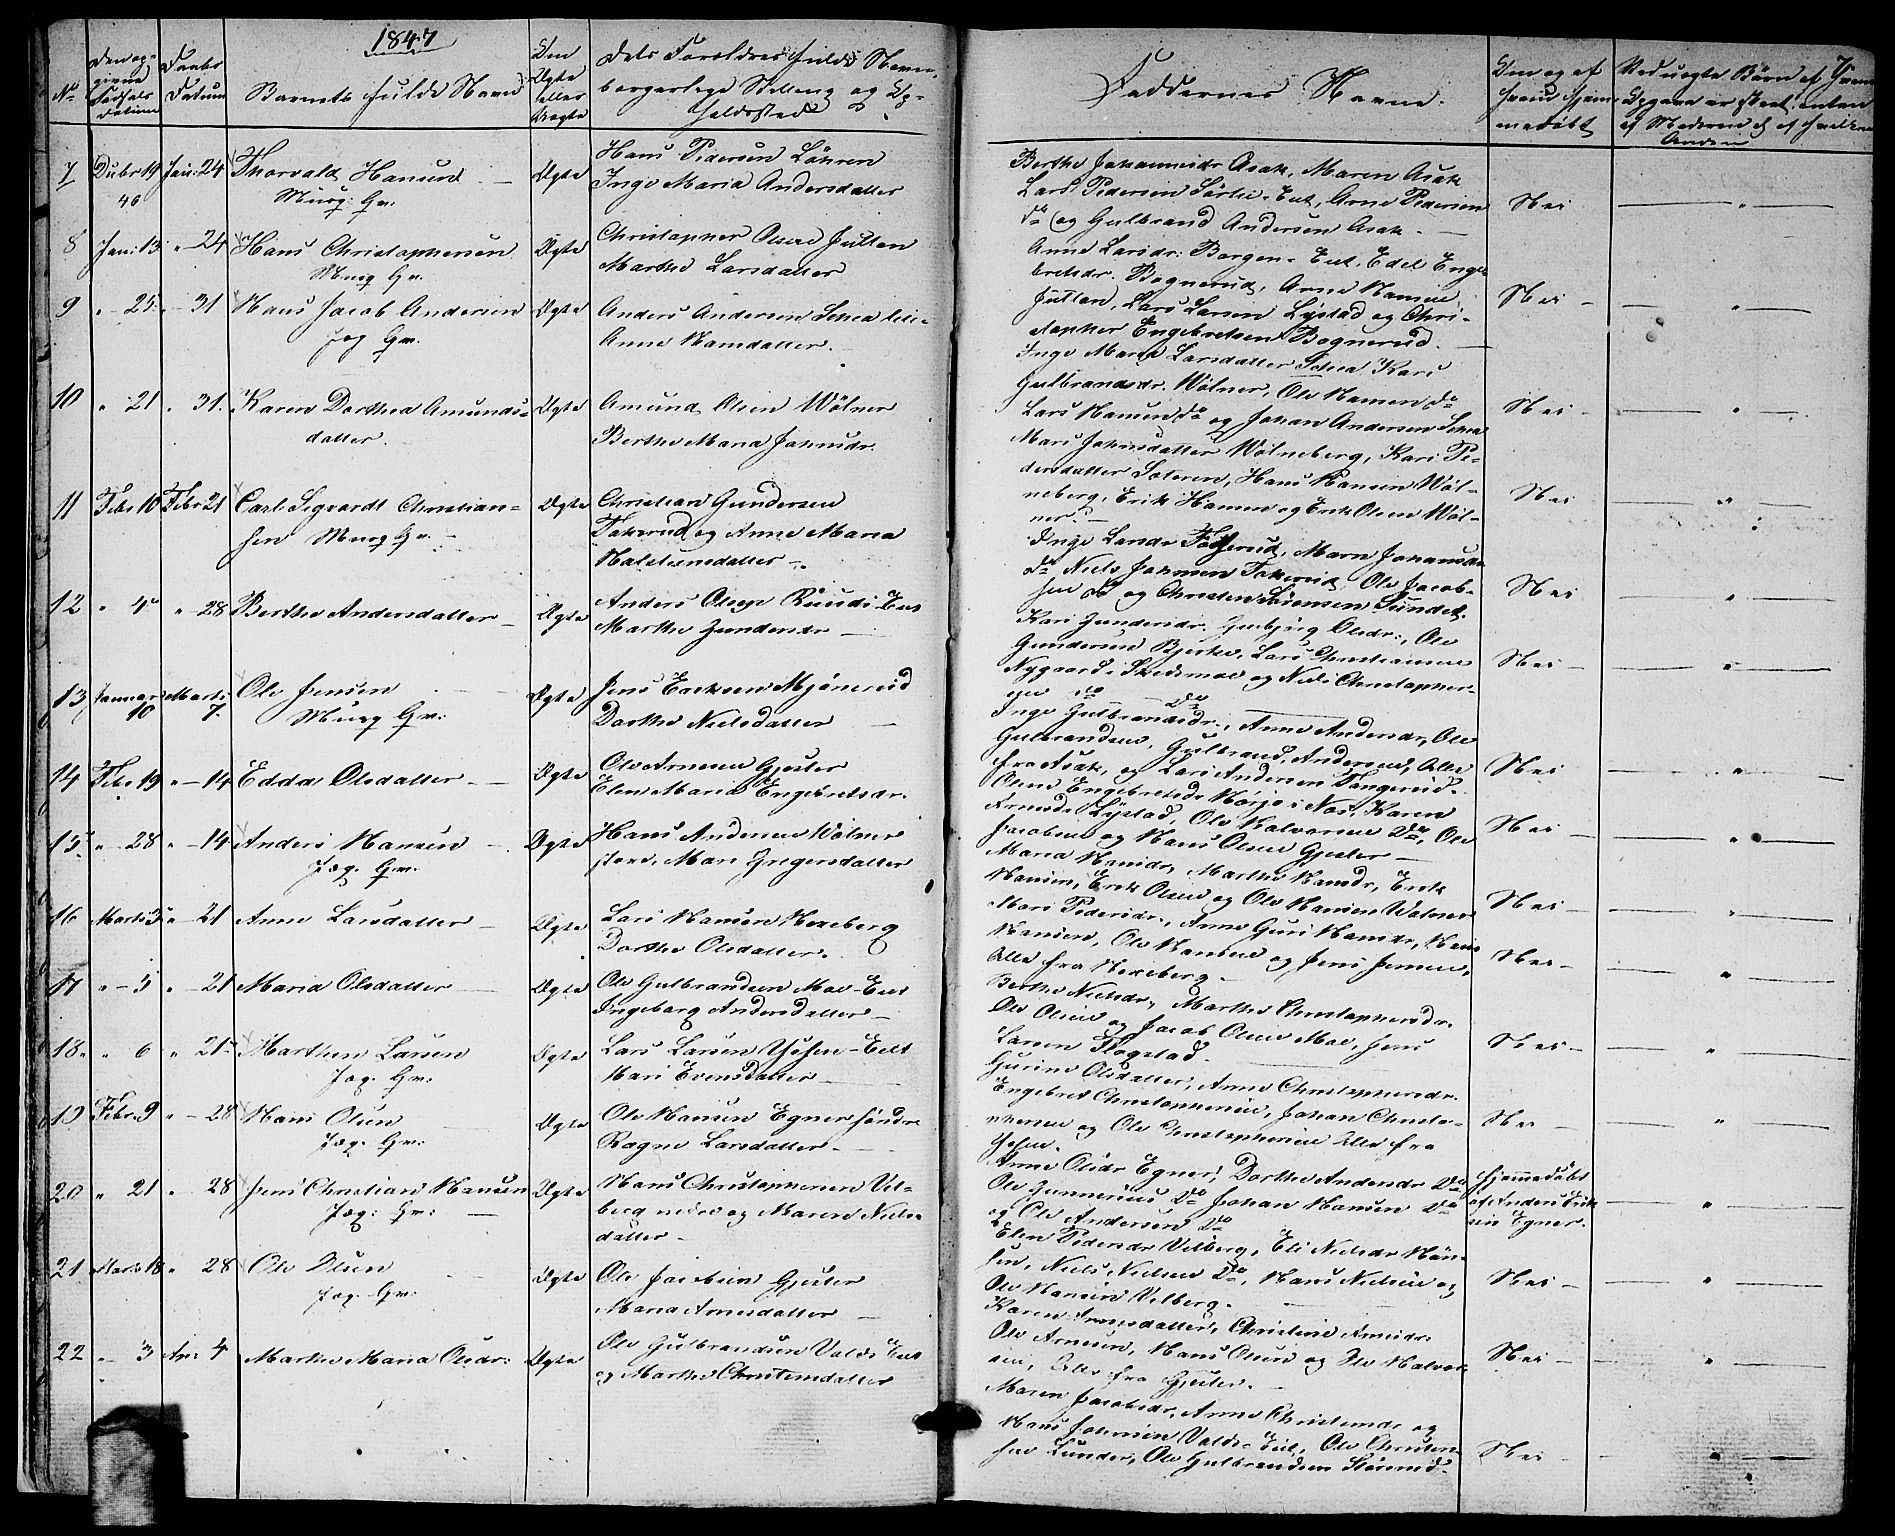 1847
No
Den op-
givne
Fødsels
Datum
Daabs
Datum
Barnets fulde Navn
Om
Ægte
eller
Uægte
Dets Forældres fulde Navne,
borgerlige Stilling og Op-
holdssted
Faddernes Navne.
Om og af
hvem hjem-
medøbt
Ved uægte Børn af hvem
Opgave er skeet enten
af Moderen el. af hvilken
Anden
7 Decbr 19 Jan: 24 Thorvald Hansen Ægte Hans Pedersen Løhren
46 Inge Maria Andersdatter
Berthe Johannesdr Asak, Maren Asak
Lars Pedersen Sørlie-Eiet, Arne Pedersen Nei
do og Gulbrand Andersen Asak.
8 Jan: 13 " 24 Hans Christophersen Ægte Christopher Olsen Jutton
Marthe Larsdatter
Anne Larsdr: Borgen-Eiet, Edel Enge-
bretsdr. Bognerud, Arne Hansen
Jutton, Lars Larsen Lystad og Chri- Nei
stopher Engebretsen Bognerud.
9 " 25 " 31 Hans Jacob Andersen Ægte Anders Andersen Schea lille
Anne Hansdatter.
Inge Maria Larsdatter Schea Kari
Gulbrandsdr. Wølner, Ole Hansen do
Lars Hansen do og Johan Andersen Schea Nei
10 " 21 " 31. Karen Dorthea Amunds- Ægte Amund Olsen Wølner
datter. Berthe Maria Johnsdr.
Mari Johnsdatter Wølneberg, Kari Pe-
dersdatter Soleren, Hans Hansen Wøl-
neberg, Erik Hansen og Erik Olsen Wøl- Nei
ner.
11 Febr 10 Febr 21 Carl Sigvardt Christian- Ægte Christian Gundersen
sen Fakerud og Anne Maria
Halsteensdatter
Inge Larsdr Fakerud, Maren Johansdr
do Niels Johnsen Fakerud, Ole Jacob-
sen do og Christen Sørensen Sundet. Nei
12 " 4 " 28 Berthe Andersdatter Ægte Anders Olsen Ruuds Eiet
Marthe Gundersdr
Kari Gundersdr. Guebjørg Olsdr:, Ole
Gundersen Bjerke, Lars Christiansen Nei
Nygaard i Skedsmoe og Niels Christopher-
sen do do
13 Januar Marts Ole Jensen Ægte Jens Eriksen Mjønerud
10 7. Dorthe Nielsdatter
Inge Gulbrandsdr., Anne Andersdr, Ole
Gulbrandsen, Gulbrand Andersen, Alle
fra Asak, og Lars Andersen Tangerud. Nei
14 Febr 19 " 14 Edda Olsdatter Ægte Ole Arnesen Gjester
Elen Maria Engebretsdr.
Olene Engebretsdr Børjes i Næs, Karen
Arnesdr Lystad, Ole Halvorsen do, Ole Nei
Jacobsen og Hans Olsen Gjester
15 " 28 " 14 Anders Hansen Ægte Hans Andersen Wølner
store, Mari Ingersdatter
Maria Hansdr, Marthe Hansdr, Erik
Hansen, Erik Olsen og Ole Hansen Wølner Nei
16 Marts 3 " 21 Anne Larsdatter Ægte Lars Hansen Hexeberg
Dorthe Olsdatter.
Mari Pedersdr., Anne Guri Hansdr, Hans
Hansen, Ole Hansen og Jens Jensen, Nei
Alle fra Hexeberg.
17 " 5 " 21 Maria Olsdatter Ægte Ole Gulbrandsen Moe-Eiet
Ingeborg Andersdatter
Berthe Nielsdr, Marthe Christophersdr.
Ole Olsen og Jacob Olsen Moe, Jens Nei
Larsen Flogstad.
18 " 6 " 21 Marthin Larsen Ægte Lars Larsen Ihsen-Eiet
Mari Evensdatter
Gurine Olsdatter, Anne Christophersdr.
Engebret Christophersen, Johan Christo- Nei
phersen og Ole Christophersen Alle fra
Ihsen.
19 Febr. 9 " 28 Hans Olsen Ægte Ole Hansen Egner søndre
Ragne Larsdatter
Anne Olsdr Egner, Dorthe Andersdr do Hjemmedøbt
Ole Gunnerius do Johan Hansen do af Anders Erik-
og Ole Andersen do sen Egner.
20 " 21 " 28 Jens Christian Hansen Ægte Hans Christophersen Vil-
berg nedre og Maren Niels-
datter
Elen Pedersdr Vilberg, Eli Nielsdr Høn-
sen, Niels Nielsen do, Hans Nielsen og Nei
Ole Hansen Vilberg.
21 Marts 18 " 28 Ole Olsen Ægte Ole Jacobsen Gjester
Maria Arnesdatter
Karen Arnesdatter, Christine Arnesdr.
Ole Arnesen, Hans Olsen og Ole Halvor- Nei
sen, Alle fra Gjester.
22 " 3 Apr: 4 Marthe Maria Olsdr: Ægte Ole Gulbrandsen Valds Eiet
og Marthe Christensdatter
Maren Jacobsdr, Anne Christensdr og
Hans Johnsen Valds-Eiet, Ole Christen-
sen Lunder, Ole Gulbrandsen Størrerud. Nei